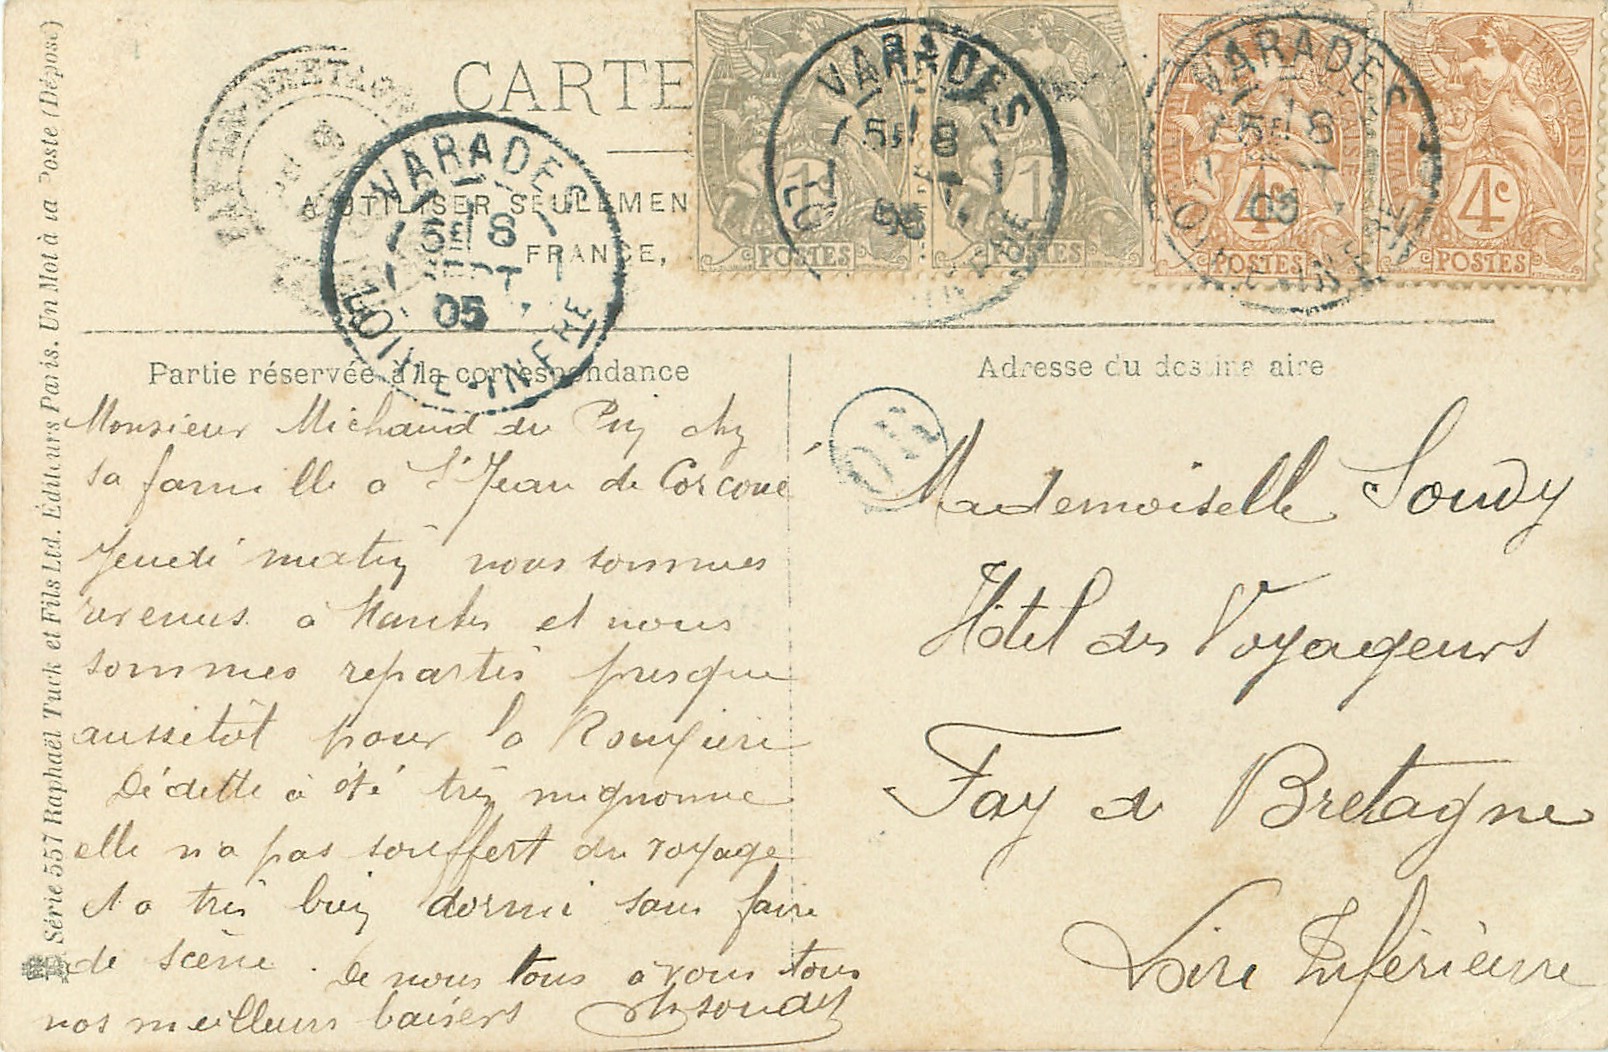 CARTE
À UTILISER SEULEMEN
FRANCE,
1
POSTES
1
POSTES
4c
POSTES
4c
POSTES
VARADES
8
SEPT
05
LOIRE-INFRE
VARADES
8
05
VARADES
8
05
Partie réservée à la correspondance
Monsieur Michaud du Pin chez
sa famille à St Jean de Corcoué
Jeudi matin nous sommes
revenus à Nantes et nous
sommes repartis presque
aussitôt pour la Rouxière
Dédette a été très mignonne
elle n'a pas souffert du voyage
et a très bien dormi sans faire
de scène. De nous tous à vous tous
nos meilleurs baisers
Adresse du destinataire
OR
Mademoiselle Soudy
Hôtel des Voyageurs
Fay de Bretagne
Loire Inférieure
Série 557 Raphaël Tuck et Fils Ltd. Éditeurs Paris. Un Mot à la Poste (Déposé)